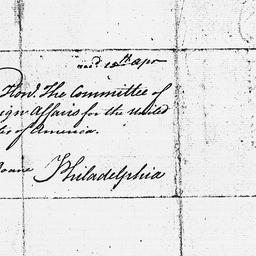 and 10th Apr
Honl. The Committee of
eign Affairs for the United
tes of America.
Deane Philadelphia